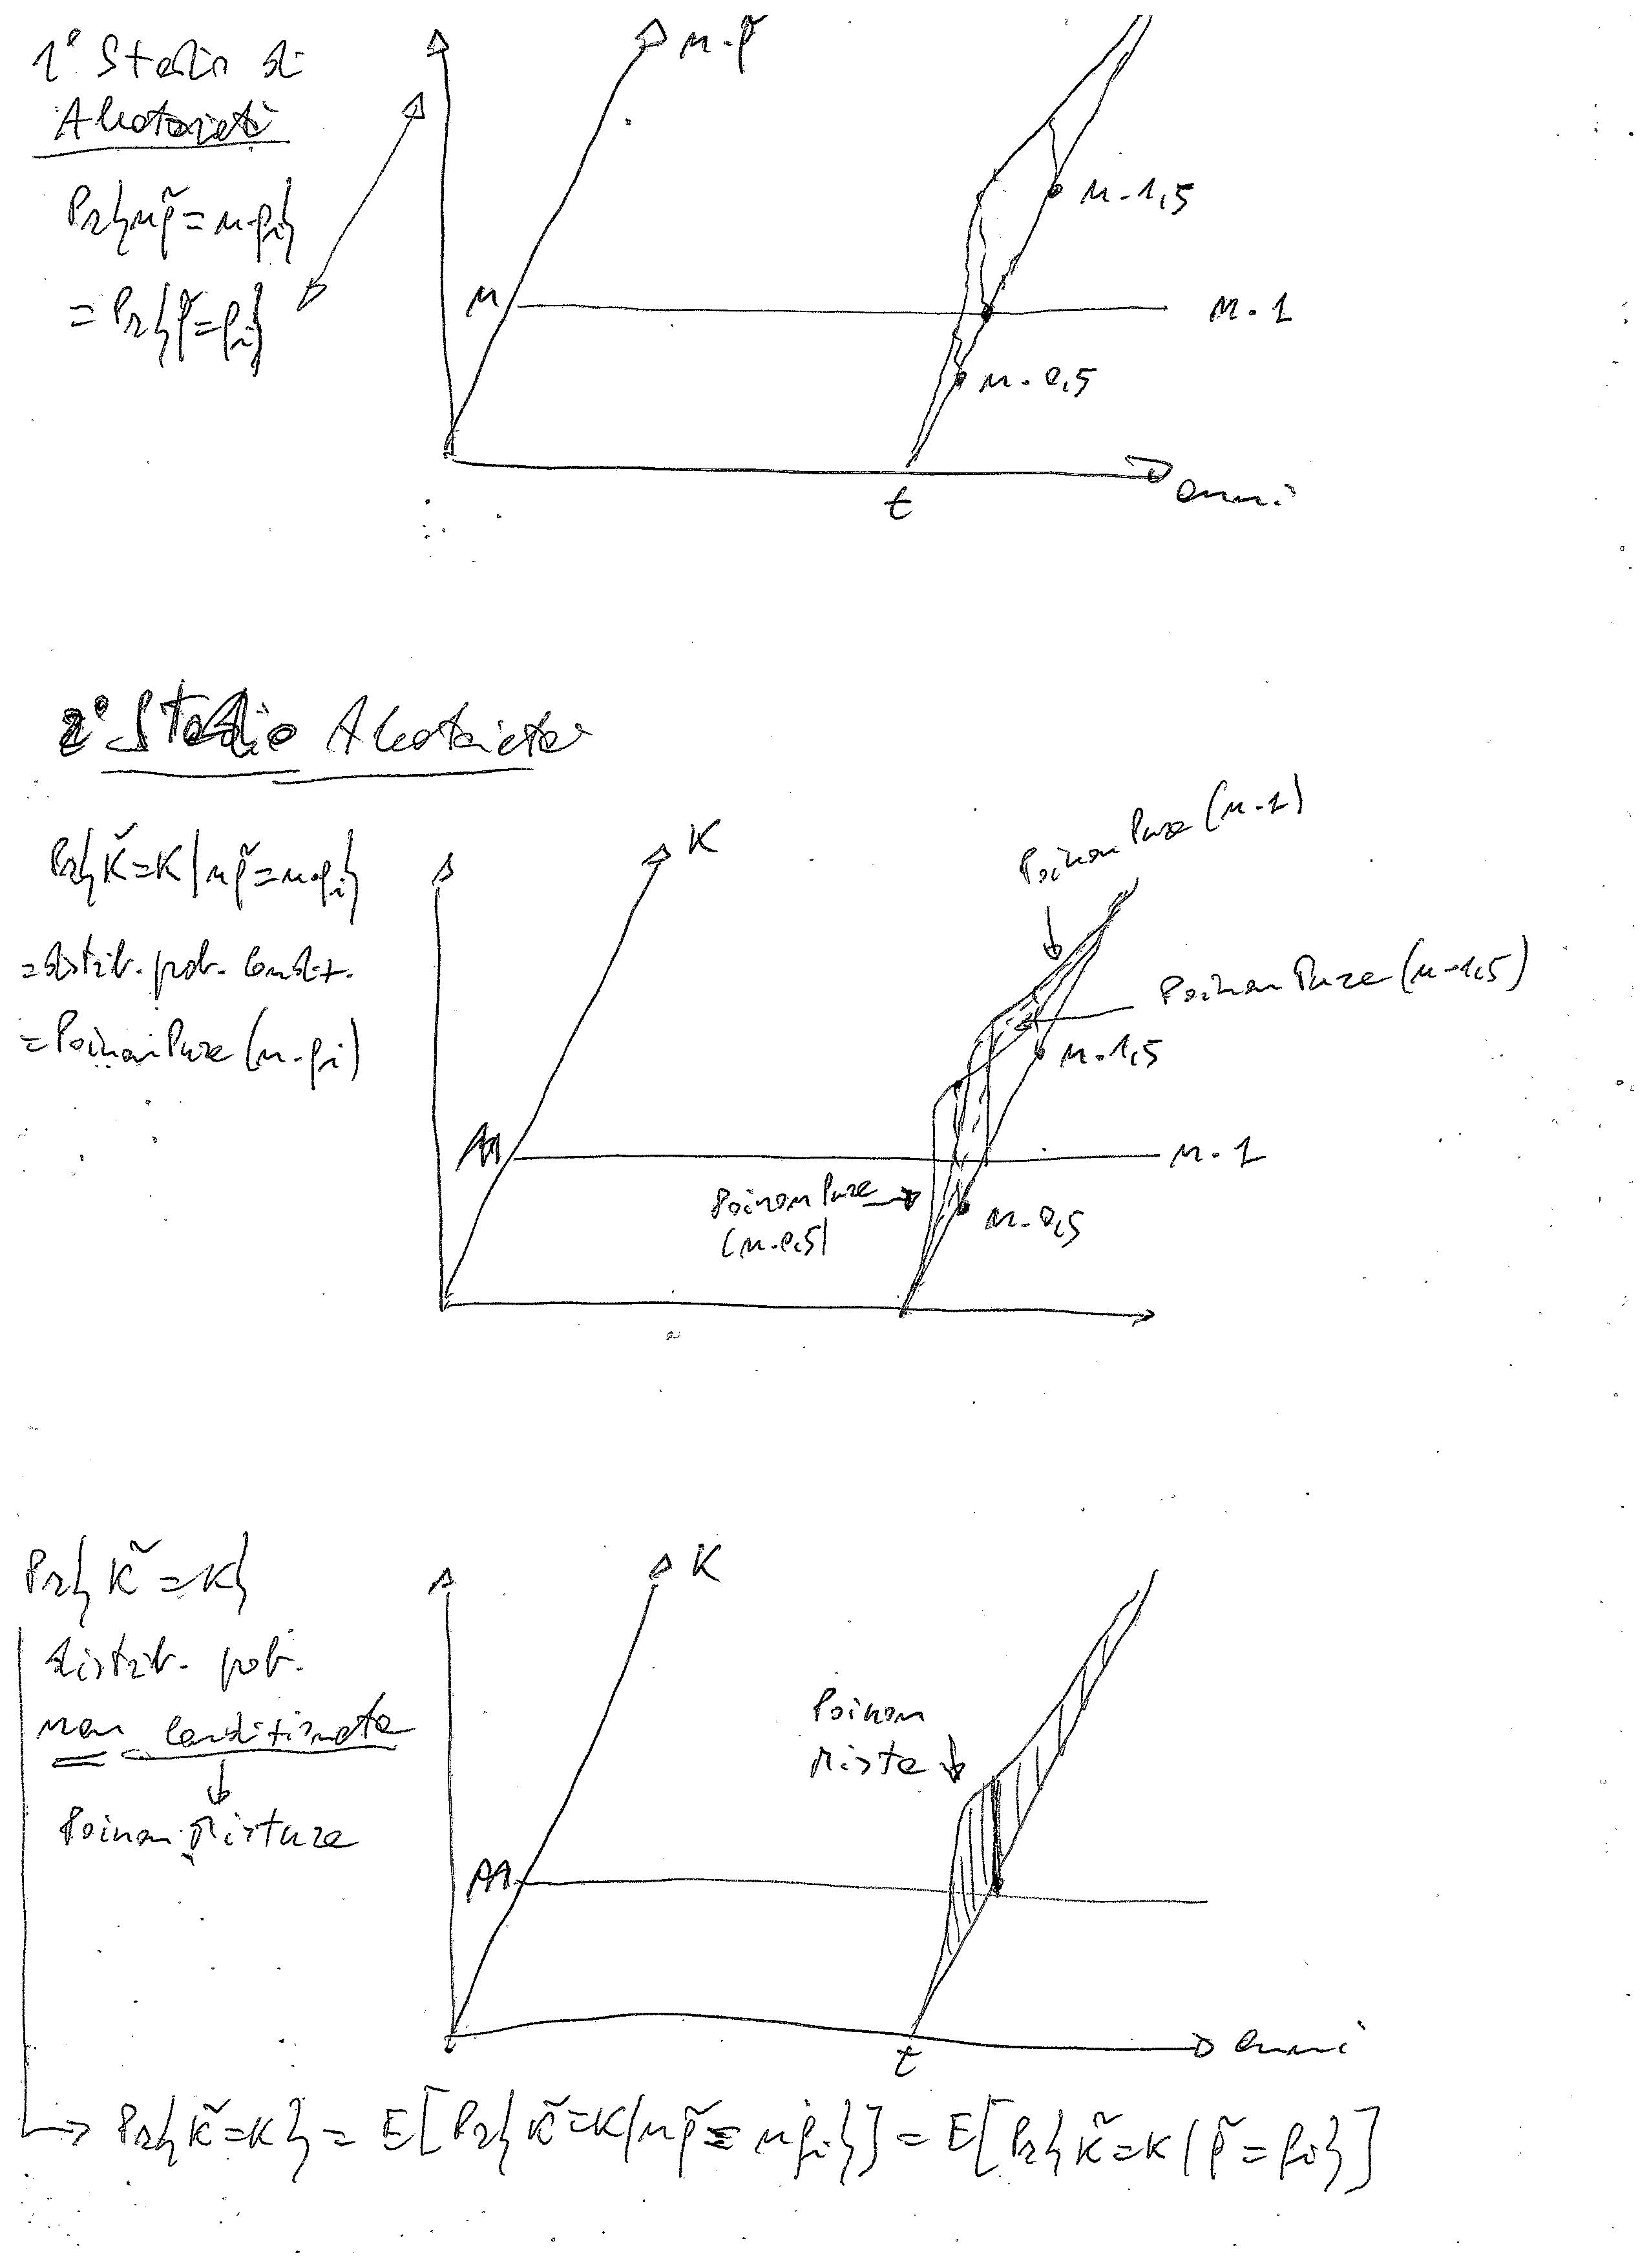 1° Stadio di
Aleatorietà
Pr{nρ̃=n·ρi}
= Pr{ρ̃=ρi}
n·ρ̃
n
n·1,5
n·1
n·0,5
t
anni
2° Stadio Aleatorietà
Pr{K̃=K|nρ̃=n·ρi}
=distrib. prob. condiz.
=Poisson Pura (n·ρi)
K
Poisson Pura (n·1)
Poisson Pura (n·1,5)
n·1,5
n
n·1
Poisson Pura
(n·0,5)
n·0,5
Pr{K̃=K}
distrib. prob.
non condizionata
Poisson Mistura
K
Poisson
Mista
n
t
anni
Pr{K̃=K} = E[Pr{K̃=K|nρ̃=nρi}] = E[Pr{K̃=K|ρ̃=ρi}]